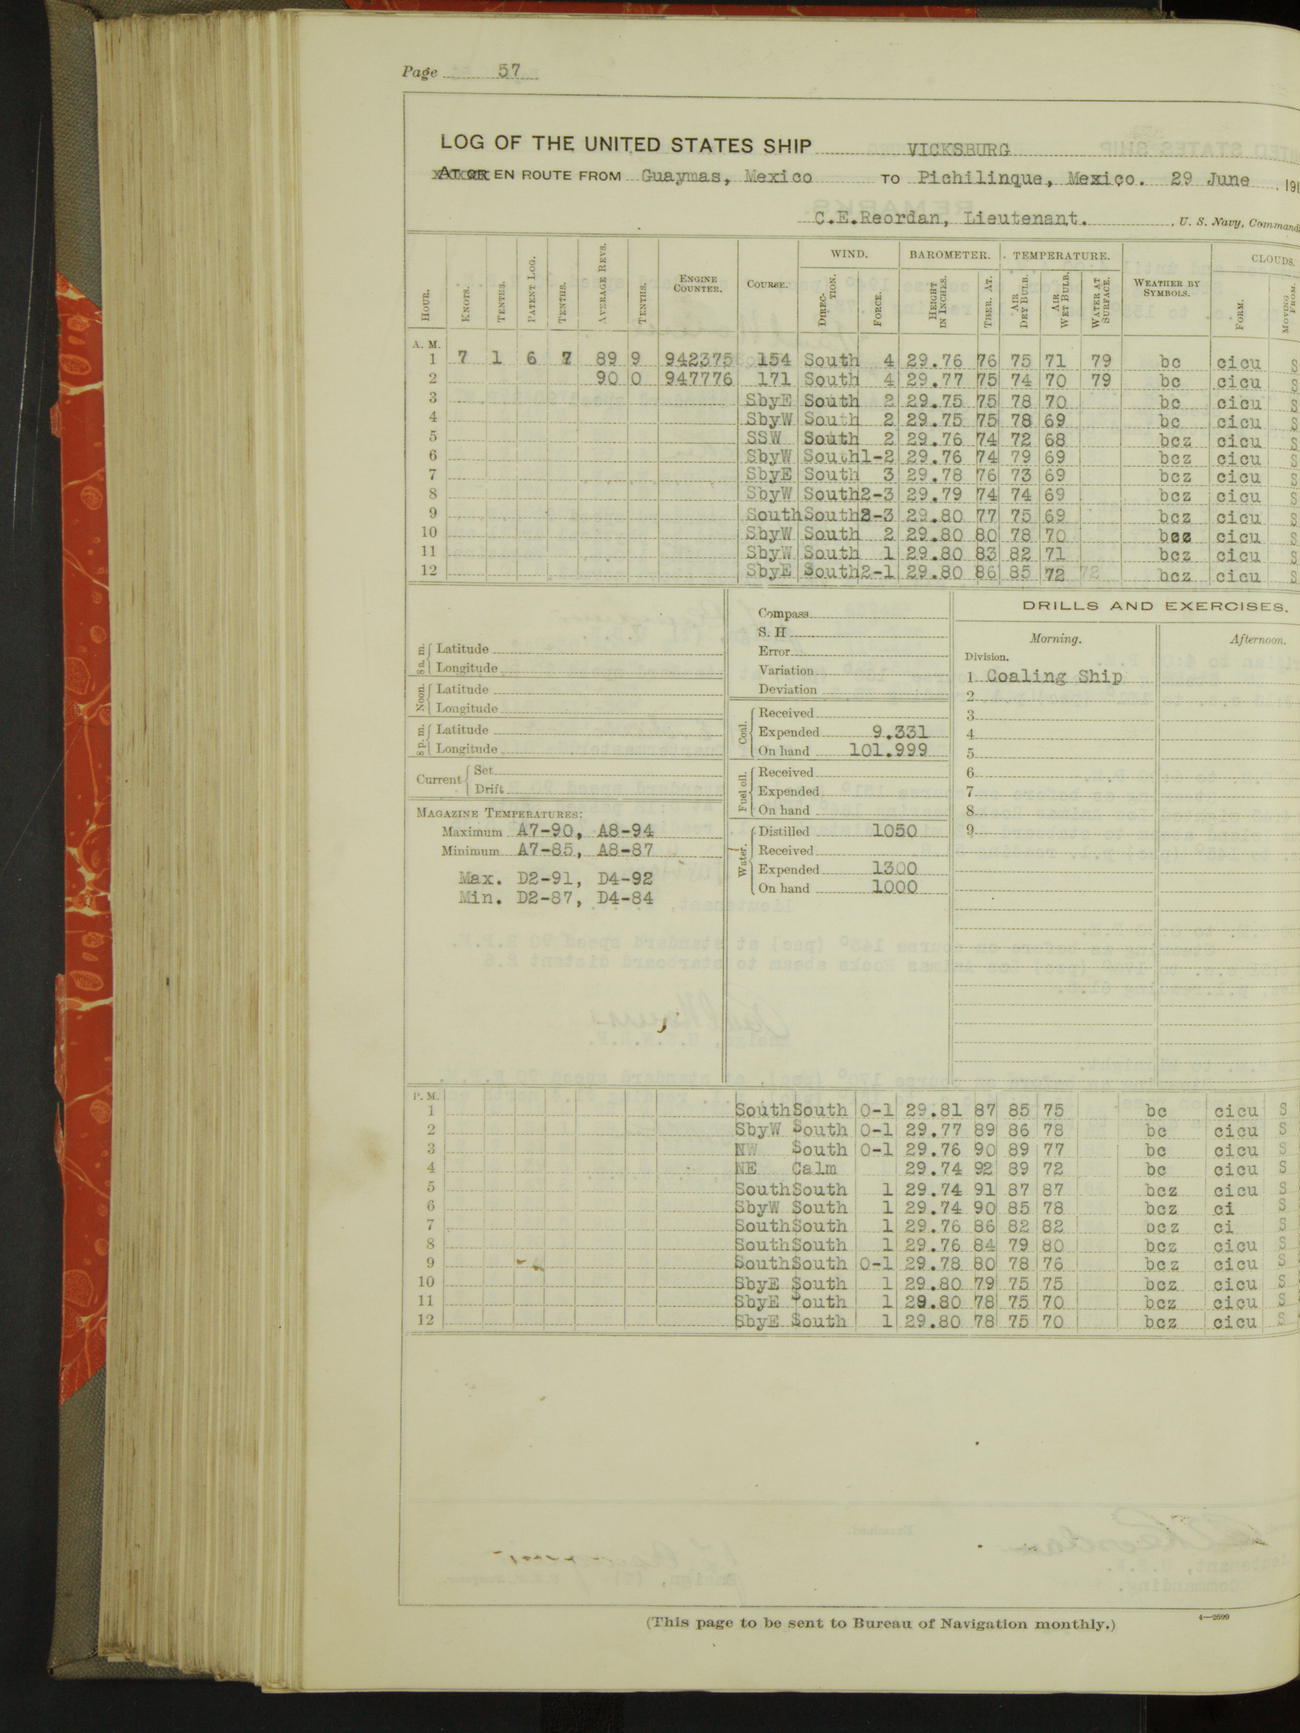 Page 57
LOG OF THE UNITED STATES SHIP VICKSBURG
AT OR EN ROUTE FROM Guaymas, Mexico TO Pichilinque, Mexico. 29 June , 191
C.E.Reordan, Lieutenant. , U. S. Navy, Command
HOUR. KNOTS. TENTHS. PATENT LOG. TENTHS. AVERAGE REVS. TENTHS. ENGINE COUNTER. COURSE. WIND. DIRECTION. FORCE. BAROMETER. HEIGHT IN INCHES. THER. AT. TEMPERATURE. AIR DRY BULB. AIR WET BULB. WATER AT SURFACE. WEATHER BY SYMBOLS. CLOUDS. FORM. MOVING FROM.
A. M.
1 7 1 6 7 89 9 942375 154 South 4 29.76 76 75 71 79 bc cicu S
2 90 0 947776 171 South 4 29.77 75 74 70 79 bc cicu S
3 SbyE South 2 29.75 75 78 70 bc cicu S
4 SbyW South 2 29.75 75 78 69 bc cicu S
5 SSW South 2 29.76 74 72 68 bcz cicu S
6 SbyW South 1-2 29.76 74 79 69 bcz cicu S
7 SbyE South 3 29.78 76 73 69 bcz cicu S
8 SbyW South 2-3 29.79 74 74 69 bcz cicu S
9 South South 2-3 29.80 77 75 69 bcz cicu S
10 SbyW South 2 29.80 80 78 70 bcz cicu S
11 SbyW South 1 29.80 83 82 71 bcz cicu S
12 SbyE South 2-1 29.80 86 85 72 72 bcz cicu S
8 a. m. Latitude
Longitude
Noon. Latitude
Longitude
8 p. m. Latitude
Longitude
Current Set
Drift
MAGAZINE TEMPERATURES:
Maximum A7-90, A8-94
Minimum A7-85, A8-87
Max. D2-91, D4-92
Min. D2-87, D4-84
Compass
S. H
Error
Variation
Deviation
Coal. Received
Expended 9.331
On hand 101.999
Fuel oil. Received
Expended
On hand
Water. Distilled 1050
Received
Expended 1300
On hand 1000
DRILLS AND EXERCISES.
Morning. Afternoon.
Division.
1 Coaling Ship
2
3
4
5
6
7
8
9
P. M.
1 South South 0-1 29.81 87 85 75 bc cicu S
2 SbyW South 0-1 29.77 89 86 78 bc cicu S
3 NW South 0-1 29.76 90 89 77 bc cicu S
4 NE Calm 29.74 92 89 72 bc cicu S
5 South South 1 29.74 91 87 87 bcz cicu S
6 SbyW South 1 29.74 90 85 78 bcz ci S
7 South South 1 29.76 86 82 82 bcz ci S
8 South South 1 29.76 84 79 80 bcz cicu S
9 South South 0-1 29.78 80 78 76 bcz cicu S
10 SbyE South 1 29.80 79 75 75 bcz cicu S
11 SbyE South 1 29.80 78 75 70 bcz cicu S
12 SbyE South 1 29.80 78 75 70 bcz cicu S
(This page to be sent to Bureau of Navigation monthly.)
4—2699